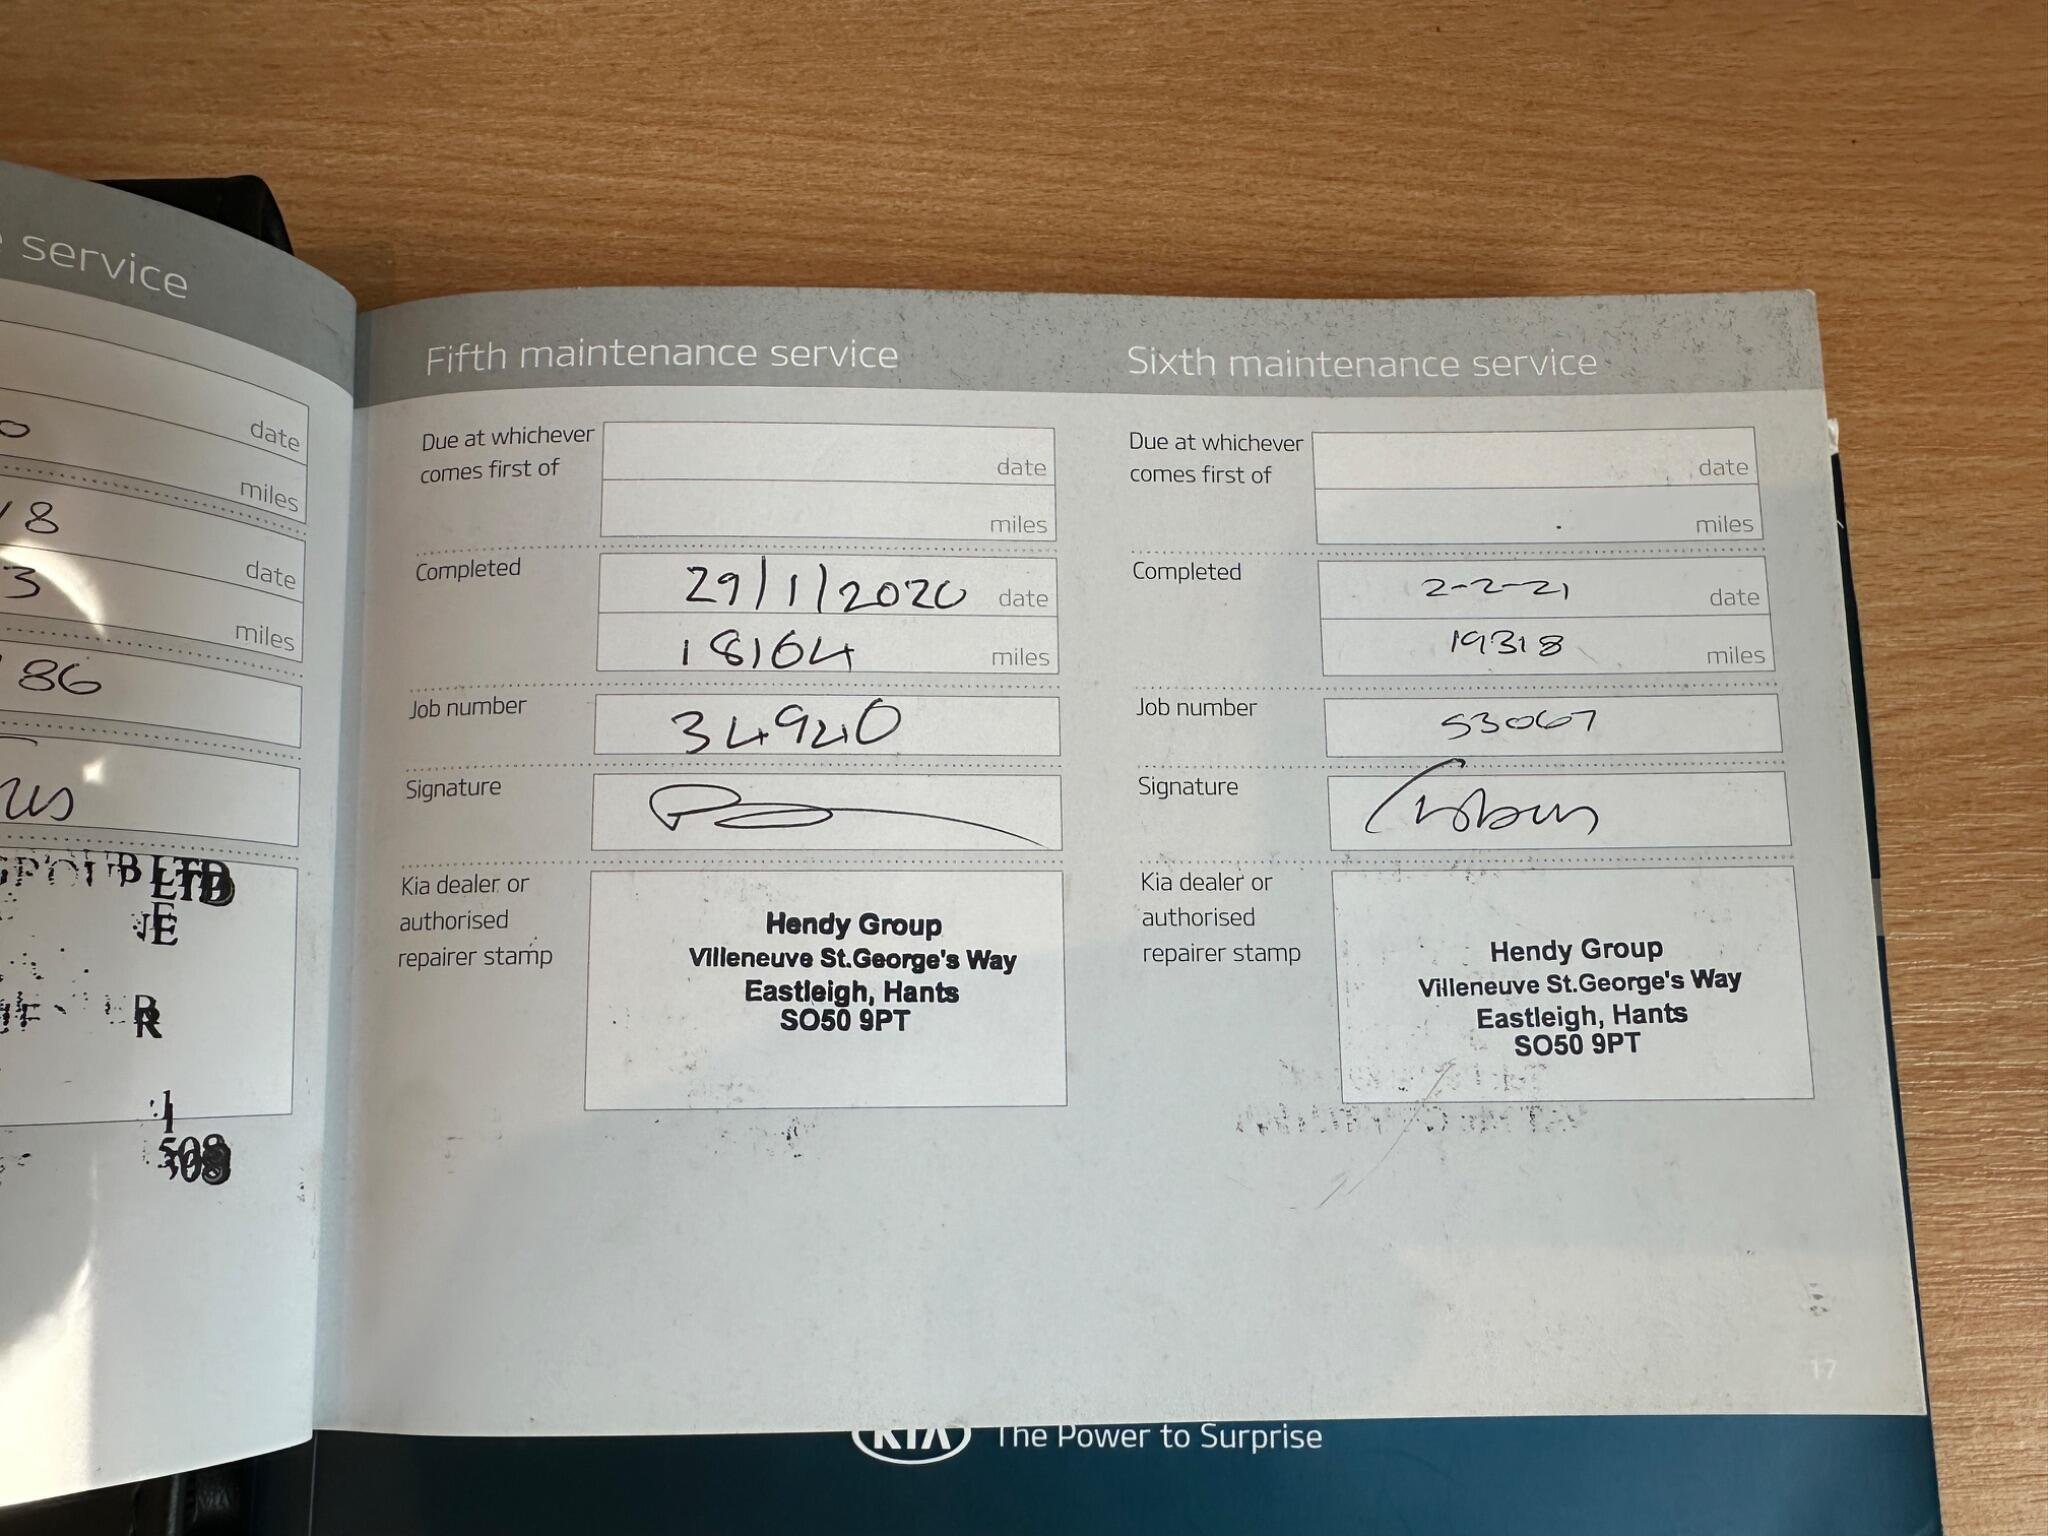 service
date
miles
8
date
3
miles
86
LTD
E
R
1
508
Fifth maintenance service
Due at whichever
comes first of
date
miles
Completed
29/1/2020 date
18164 miles
Job number
34940
Signature
Kia dealer or
authorised
repairer stamp
Hendy Group
Villeneuve St.George's Way
Eastleigh, Hants
SO50 9PT
Sixth maintenance service
Due at whichever
comes first of
date
miles
Completed
2-2-21 date
19318 miles
Job number
53067
Signature
Kia dealer or
authorised
repairer stamp
Hendy Group
Villeneuve St.George's Way
Eastleigh, Hants
SO50 9PT
17
KIA The Power to Surprise